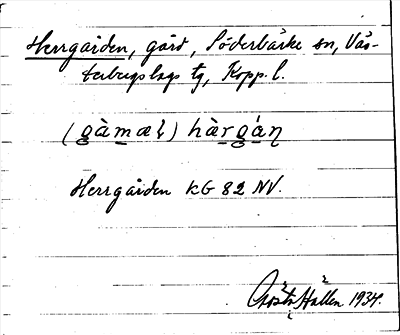 Herrgården, gård, Söderbärke sn, Väs-
terbergslags tg, Kopp. l.
(gàmæl) hàrgán
Herrgården KG 82 NV.
Gösta Hallen 1934.